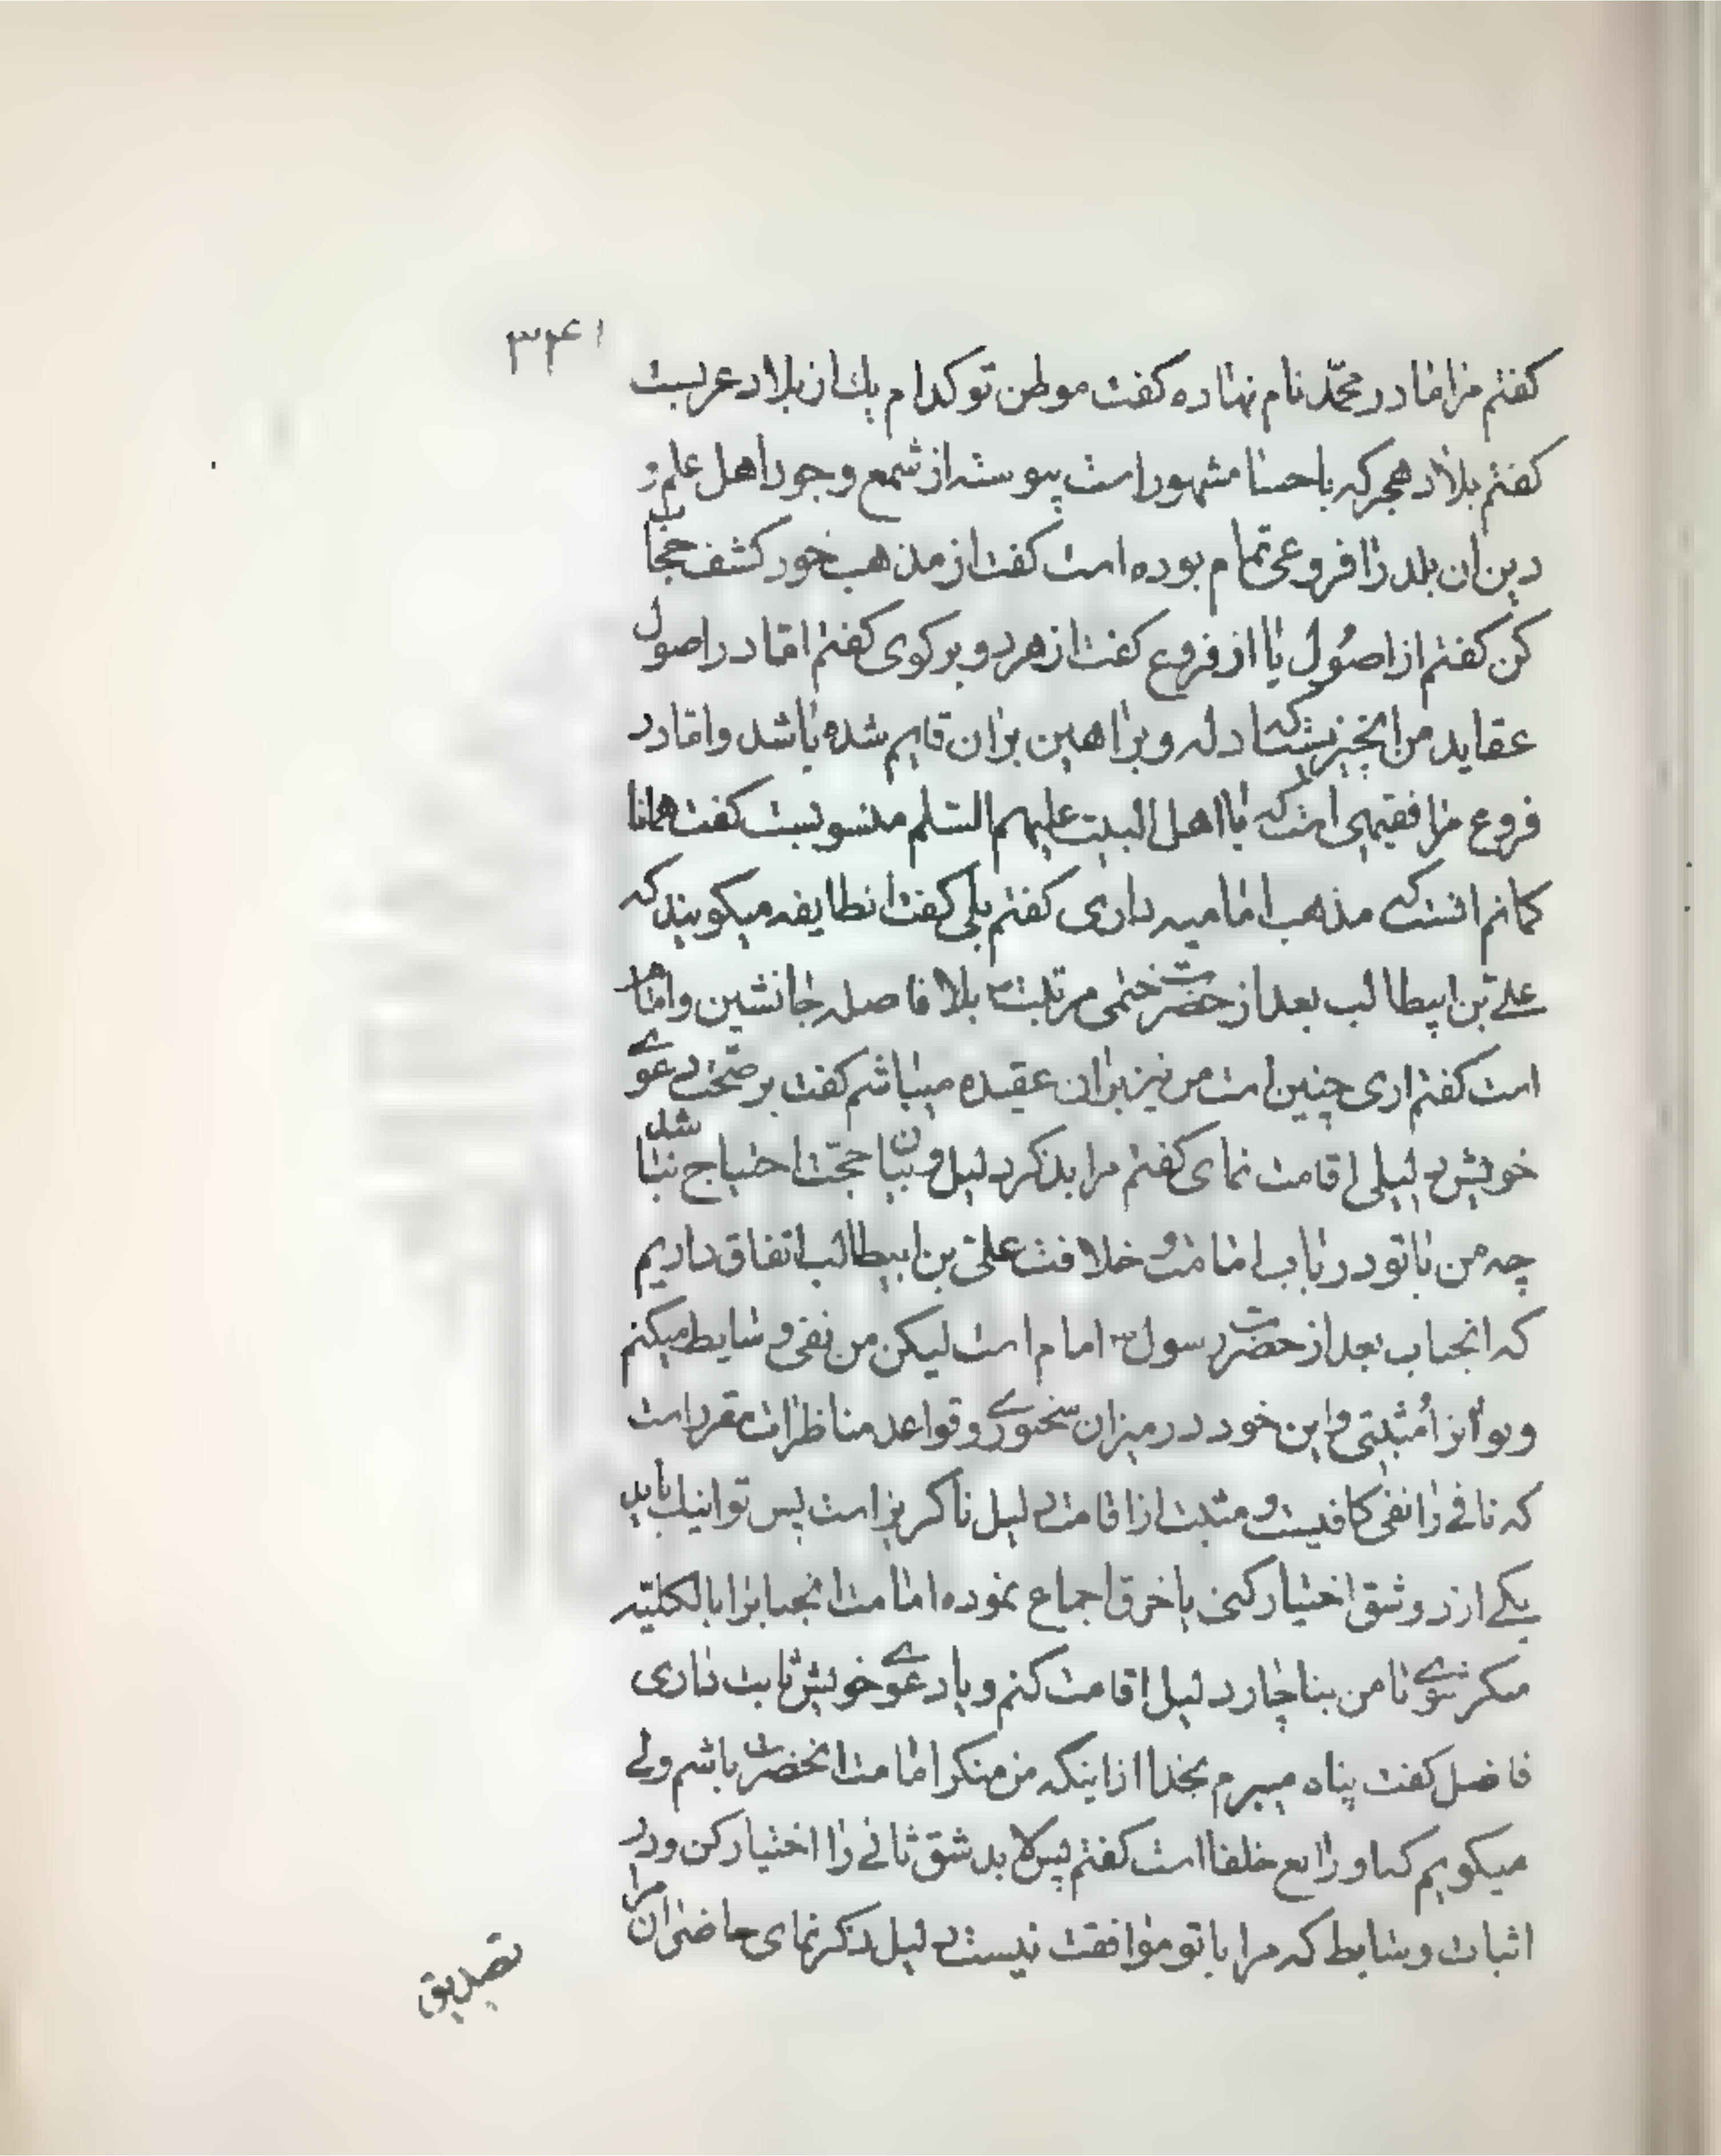 ۳۴۱
کفتم مرا مادر محمّد نام نهاده کفت موطن تو کدام یك از بلاد عربست
کفتم بلاد هجر که باحسا مشهور است پیوسته از شمع وجود اهل علم و
دین ان بلد را فروغی تمام بوده است کفت از مذهب خود کشف حجاب
کن کفتم از اصُول یا از فروع کفت از هر دو بر کوی کفتم امّا در اصول
عقاید من انچیزیست که ادله و براهین بران قایم شده باشد و امّا در
فروع مرا فقیهی است که با اهل البیت علیهم السّلم منسوبست کفت همانا
کمانم انست که مذهب امامیه داری کفتم بلی کفت انطایفه میکویند که
علی بن ابیطالب بعد از حضرت ختمی مرتبت بلا فاصله جانشین و امام
است کفتم اری چنین است من نیز بران عقیده میباشم کفت بر صحّت دعوی
خویش دلیلی اقامت نمای کفتم مرا بذکر دلیل و بیان حجّت احتیاج نباشد
چه من با تو در باب امامت و خلافت علیّ بن ابیطالب اتفاق داریم
که انجناب بعد از حضرت رسول ص امام است لیکن من نفی وسایط میکنم
و تو انرا مُثبتی و این خود در میزان سخنوری و قواعد مناظرات مقرر است
که نافی را نفی کافیست و مثبت را از اقامت دلیل ناکریز است پس تو اینك باید
یکی از دو شق اختیار کنی یا خرق اجماع نموده امامت انجنابرا بالکلیّه
منکر شوی تا من بناچار دلیل اقامت کنم و یا دعوی خویش ثابت داری
فاضل کفت پناه میبرم بخدا از اینکه من منکر امامت انحضرت باشم ولی
میکویم که او رابع خلفا است کفتم پس لابد شق ثانی را اختیار کن و در
اثبات وسایط که مرا با تو موافقت نیست دلیل ذکر نمای حاضران مرا
تصدیق